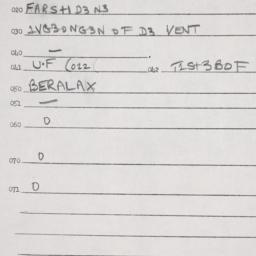 020 FARSHD3N3
030 1VB3ONG3N OF D3 VENT
040 —
041 U.F (022 042 TISH3BOF
050 BERALAX
051 —
060 0
070 0
071 0